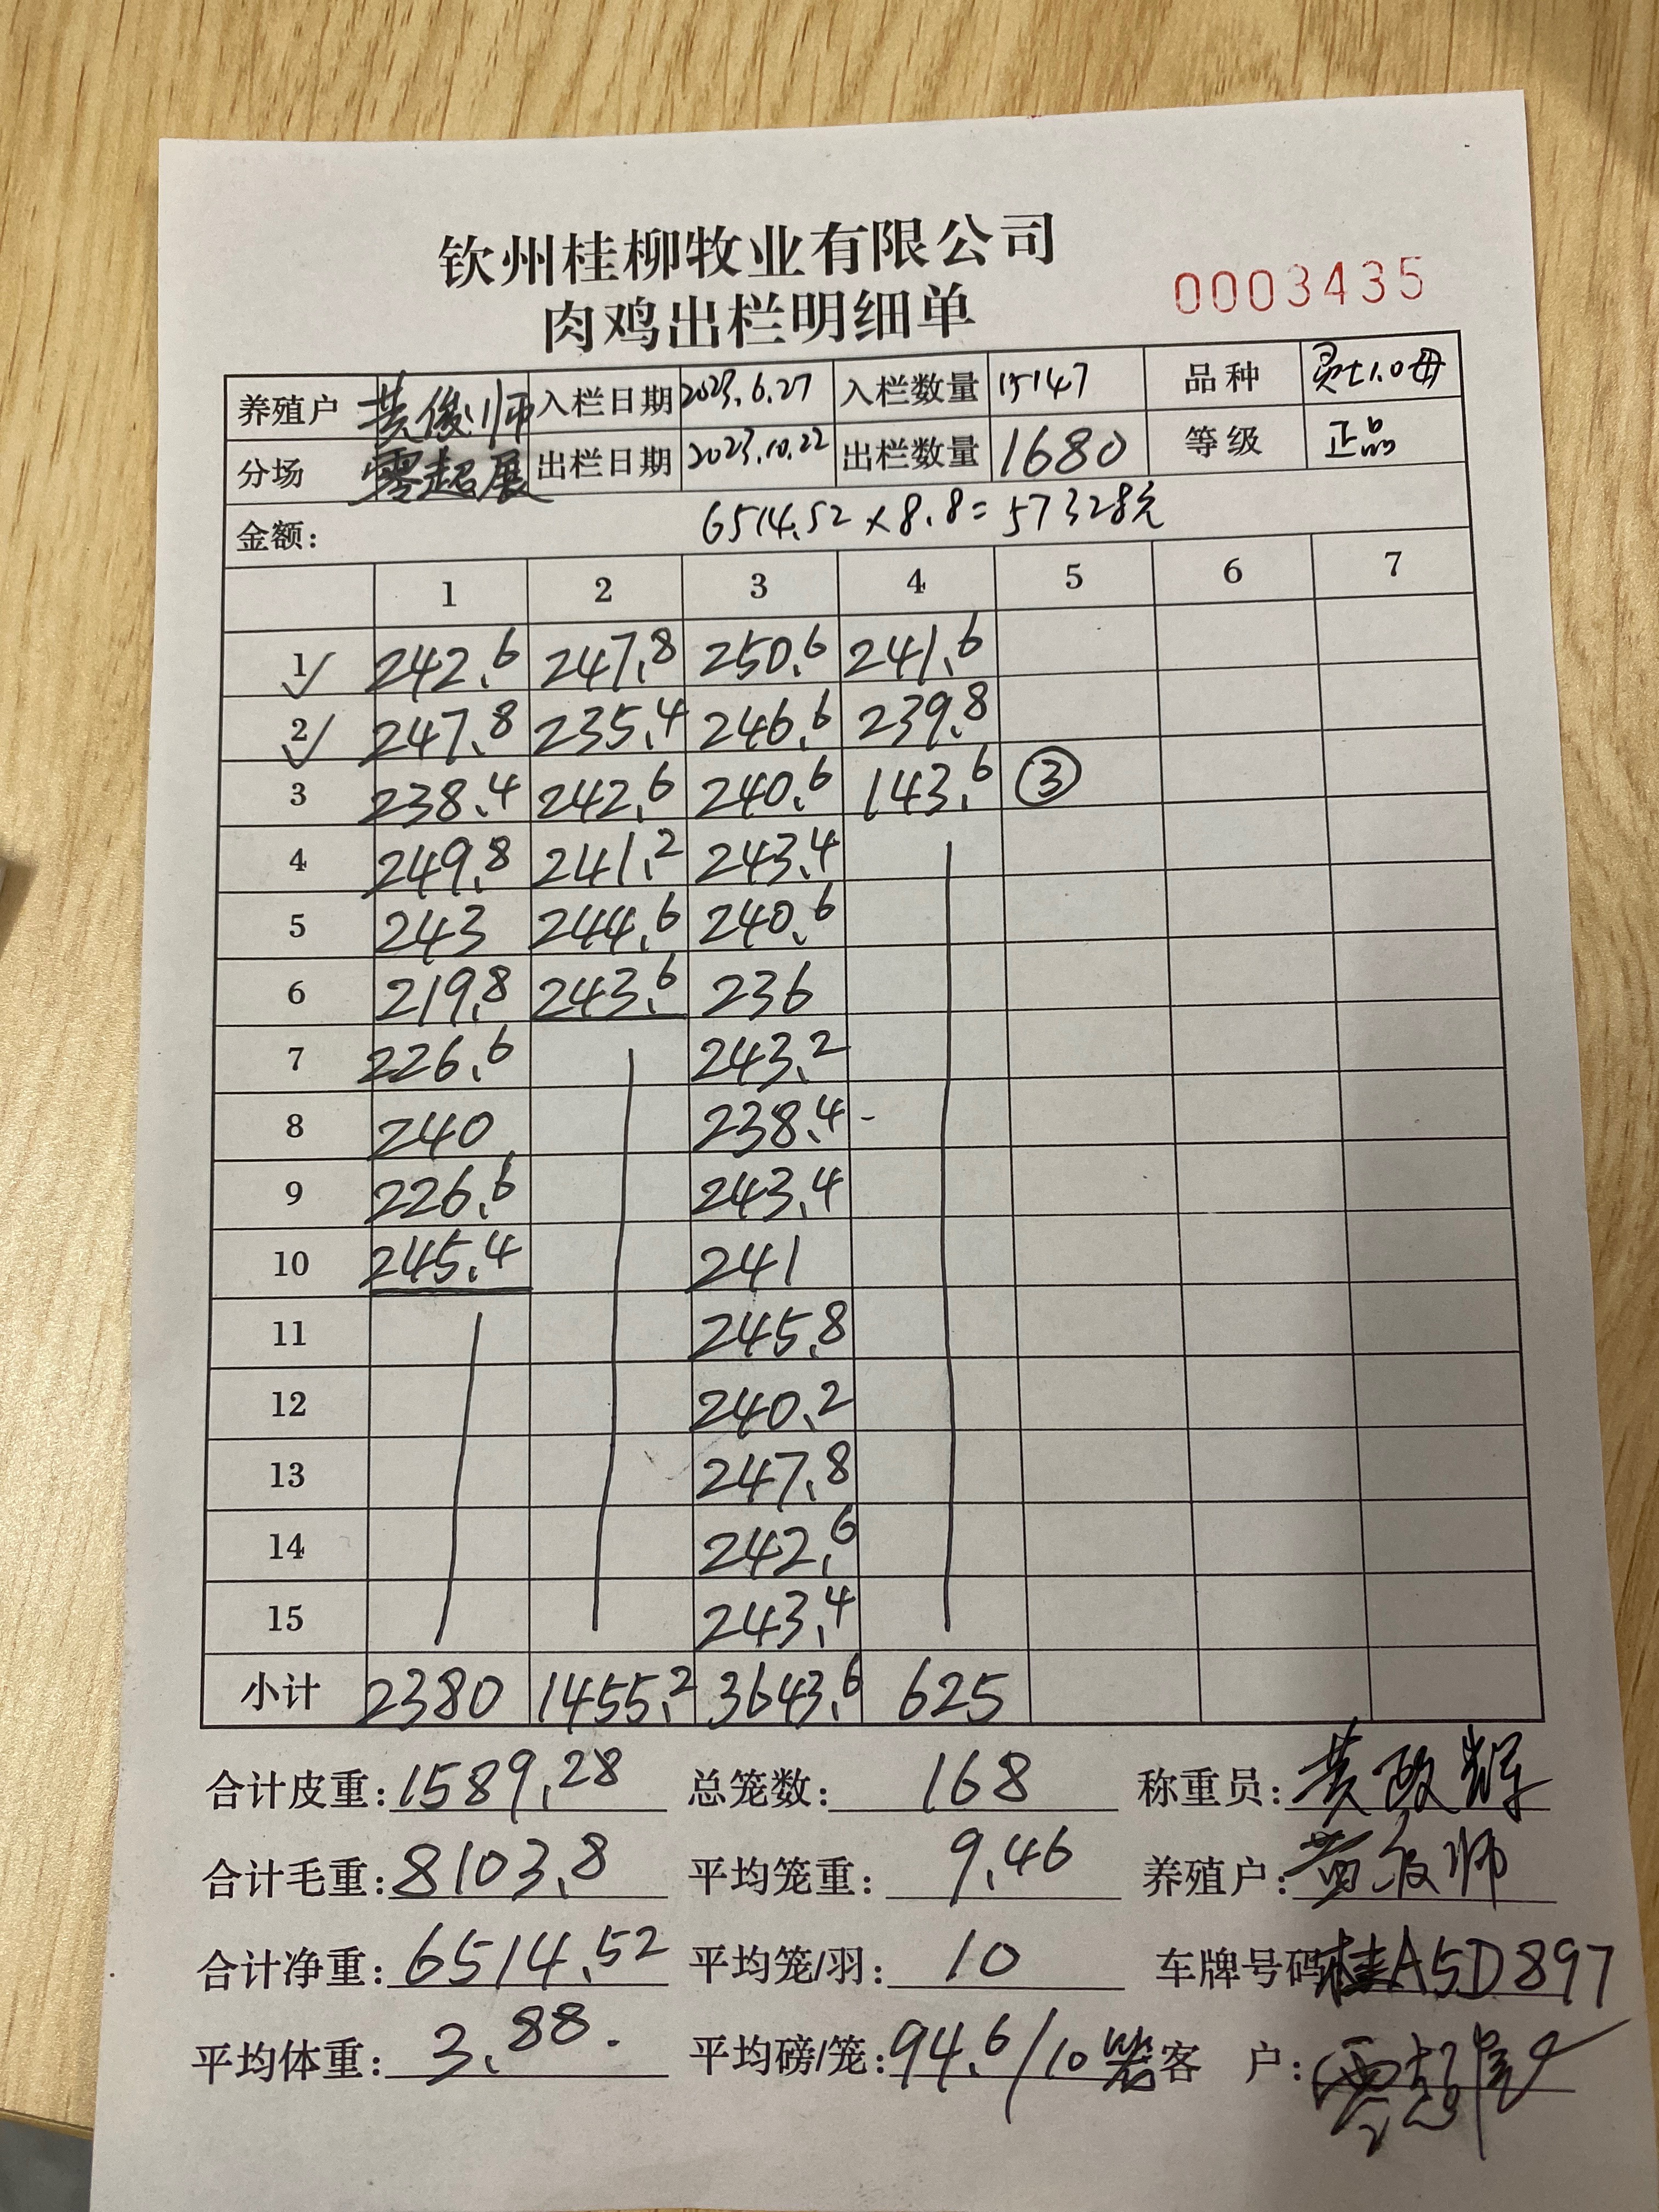 钦州桂柳牧业有限公司
肉鸡出栏明细单
0003435
养殖户 黄俊师 入栏日期 2023.6.27 入栏数量 15147 品种
分场 零超展 出栏日期 2023.10.22 出栏数量 1680 等级 正品
金额: 6514.52×8.8=57328元
1 2 3 4 5 6 7
1 242.6 247.8 250.6 241.6
2 247.8 235.4 246.6 239.8
3 238.4 242.6 240.6 143.6 ③
4 249.8 241.2 243.4
5 243 244.6 240.6
6 219.8 243.6 236
7 226.6 243.2
8 240 238.4
9 226.6 243.4
10 245.4 241
11 245.8
12 240.2
13 247.8
14 242.6
15 243.4
小计 2380 1455.2 3643.6 625
合计皮重: 1589.28 总笼数: 168 称重员: 黄政辉
合计毛重: 8103.8 平均笼重: 9.46 养殖户: 黄俊师
合计净重: 6514.52 平均笼/羽: 10 车牌号码 桂A5D897
平均体重: 3.88. 平均磅/笼: 94.6/10 客 户: